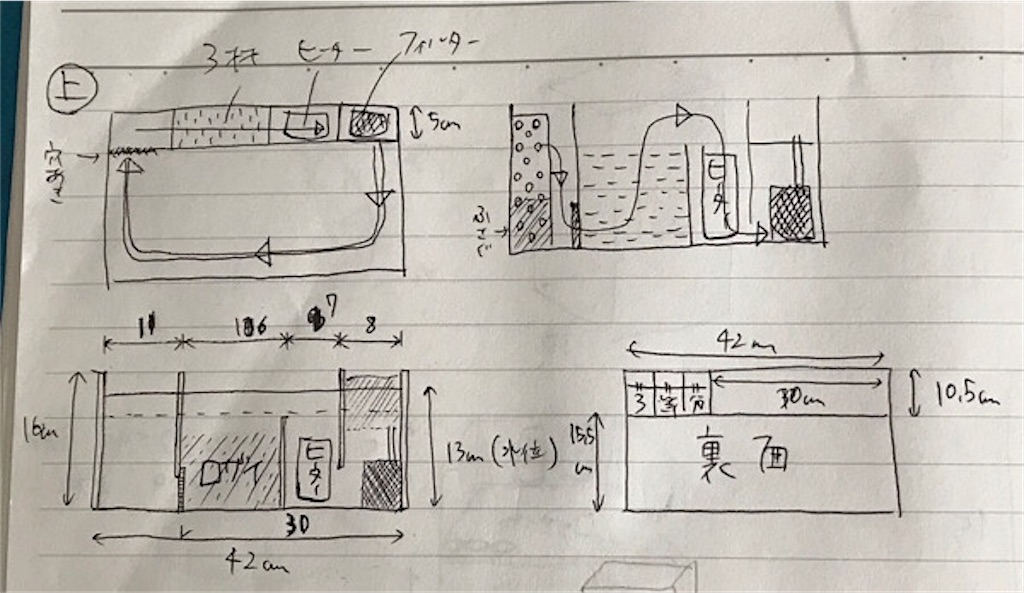 上
ろ材
ヒーター
フィルター
5cm
穴あき
ヒーター
ふさぐ
11
16
7
8
16cm
ロザイ
ヒーター
13cm(水位)
30
42cm
42cm
30cm
10.5cm
15.5cm
裏面